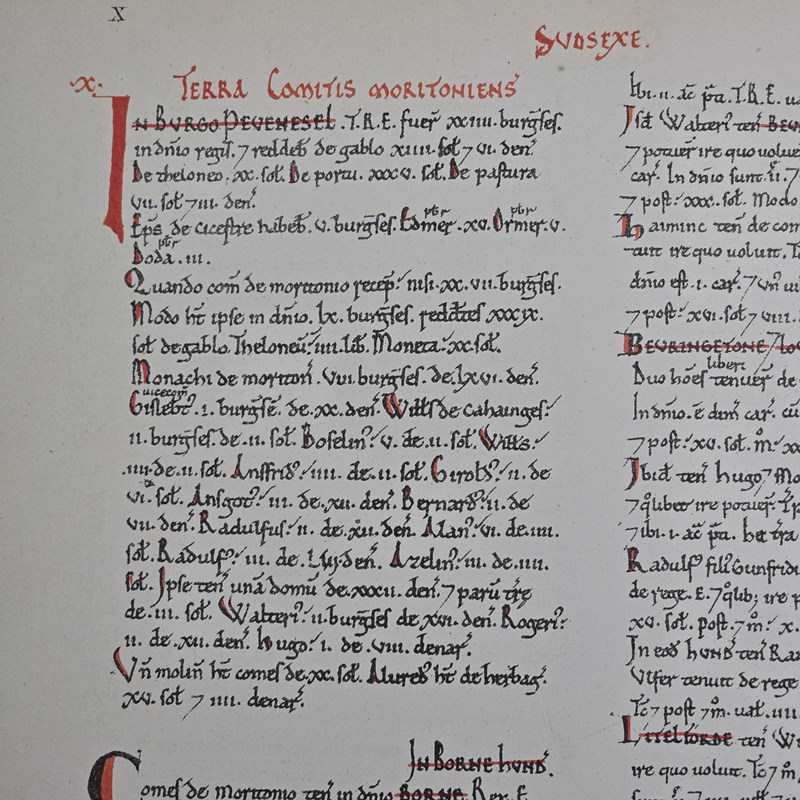 X
SUDSEXE.
.X. TERRA COMITIS MORITONIENS'
IN BURGO PEVENESEL .T.R.E. fuer̄ xxiiii. burḡses.
in dn̄io regis. 7 reddeb̄ de gablo xiiii. sol̄ 7 vi. den̄.
De theloneo. xx. sol̄. De portu. xxxv. sol̄. De pastura
vii. sol̄ 7 iii. den̄.
Ep̄s de cicestre habeb̄. v. burḡses. Edmer pb̄r. xv. Ormer pb̄r. v.
Doda pb̄r. iii.
Quando com̄ de moritonio recep̄: nisi. xx. vii. burḡses.
Modo ht̄ ipse in dn̄io. lx. burḡses. redd̄tes xxxix.
sol̄ de gablo. Theloneū: iiii. lib̄. Moneta: xx. sol̄.
Monachi de moriton̄. viii. burḡses. de. lxvi. den̄.
Gislebt' vicecom̄. i. burḡsē. de. xx. den̄. Wills de cahainges:
ii. burḡses. de. ii. sol̄. Boselin': v. de. ii. sol̄. Wills:
.iiii. de. ii. sol̄. Ansfrid': iiii. de. ii. sol̄. Girold': ii. de
vi. sol̄. Ansgot': iii. de. xii. den̄. Bernard': ii. de
vii. den̄. Radulfus: ii. de. xii. den̄. Alan': vi. de. iiii.
sol̄. Radulf': iii. de. liii. den̄. Azelin': iii. de. iiii.
sol̄. Ipse ten̄ unā domū de. xxxii. den̄. 7 parū tr̄e
de. iii. sol̄. Walteri': ii. burḡses de. xvi. den̄. Rogeri':
ii. de. xii. den̄. hugo: i. de. viii. denar̄.
Vn̄ molin̄ ht̄ comes de. xx. sol̄. Alured' ht̄ de herbag̃.
xv. sol̄ 7 iiii. denar̄.
IN BORNE HUND'.
Comes de moritonio ten̄ in dn̄io BORNE. Rex. E.
Ibi. ii. ac̄ p̄ti. T.R.E.
Isd' Walteri' ten̄
7 potuer̄ ire quo
car̄. In dn̄io sunt. ii. 7
7 post: xxx. sol̄. Modo
haminc ten̄ de com
tuit ire quo voluit.
dn̄io est. i. car̄. 7 un̄
7 post: xvi. sol̄ 7 viii.
BEVRINGETONE
Duo hōes liberi tenuer̄ de
In dn̄io. ē dim̄ car̄. cū
7 post: xv. sol̄. m°:
Ibid' ten̄ hugo,
7 q'libet ire potuer̄.
7 ibi. i. ac̄ p̄ti.
Radulf' fili' Gunfridi
de rege. E. 7 q'lib; ire
xv. sol̄. post. 7 m°: x.
In eod' HUND' ten̄
Ulfer tenuit de rege
Tc̄ 7 post 7 m°. ual̄.
LITELFORDE ten̄
ire quo voluit. Tc̄ 7 m°.